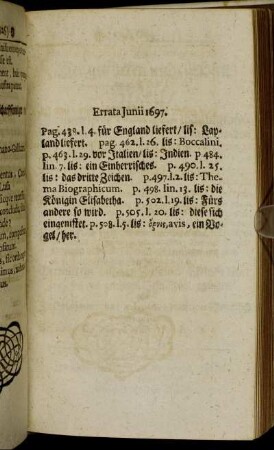 Errata Junii 1697.
Pag. 430. l. 4. für England liefert / lis: Lap-
land liefert. pag. 462. l. 26. lis: Boccalini.
p. 463. l. 29. vor Italien / lis: Indien. p 484.
lin. 7. lis: ein Einherrisches. p. 490. l. 25.
lis: das dritte Zeichen. p.497.l.2. lis: The-
ma Biographicum. p. 498. lin. 13. lis: die
Königin Elisabetha. p. 502. l. 19. lis: Fürs
andere so wird. p. 505. l. 20. lis: diese sich
eingenistet. p. 508. l. 5. lis: ὄρνις, avis, ein Vo-
gel / her.